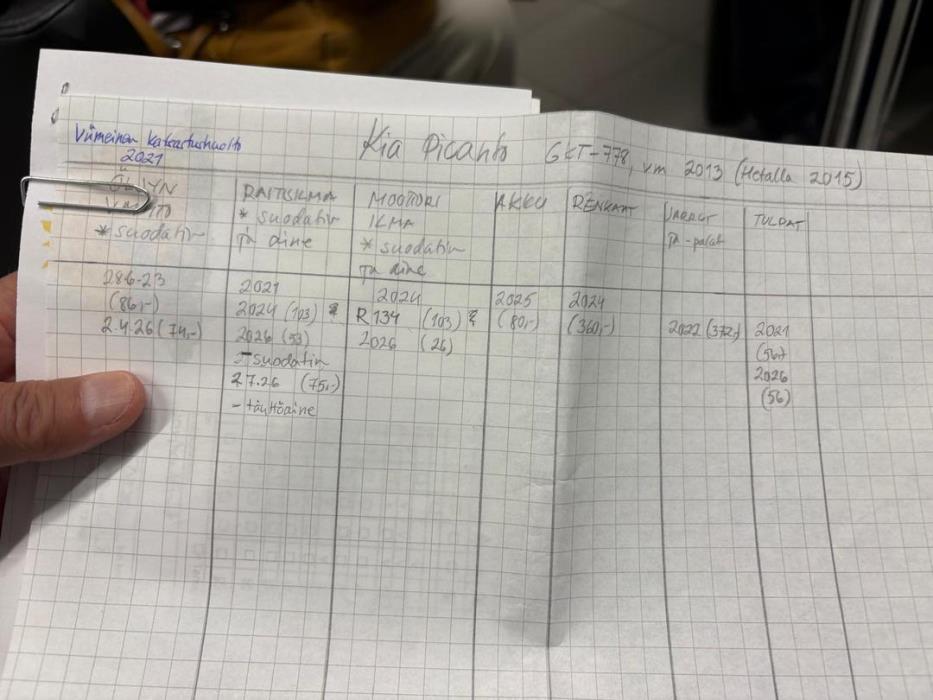 Viimeinen katsastushuolto
2021
Kia Picanto GKT-778, vm 2013 (Hetalla 2015)
ÖLJYN
* suodatin
28.6-23
(86,-)
2.4.26 (74,-)
RAITISILMA
* suodatin
ja aine
2021
2024 (103)
2026 (53)
- suodatin
2.7.26 (75,-)
- täyttöaine
MOOTTORI
ILMA
* suodatin
ja aine
2024
R 134 (103) ?
2026 (26)
AKKU
2025
(80,-)
RENKAAT
2024
(360,-)
JARRUT
ja -palat
2022 (372,-)
TULPAT
2021
(56)
2026
(56)